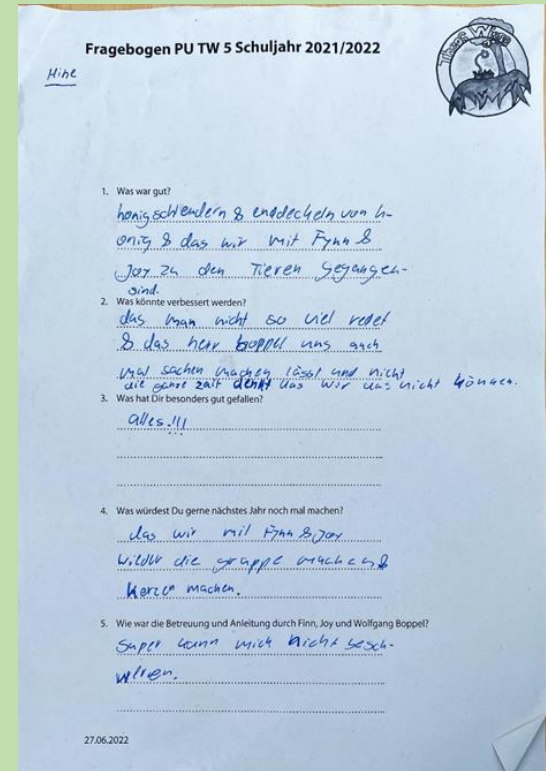 Fragebogen PU TW 5 Schuljahr 2021/2022
Mine
1. Was war gut?
honigschleudern & enddeckeln von h-
onig & das wir mit Fynn &
Joy zu den Tieren gegangen-
sind.
2. Was könnte verbessert werden?
das man nicht so viel redet
& das herr boppel uns auch
mal sachen machen lässt und nicht
die ganze zeit denkt das wir das nicht können.
3. Was hat Dir besonders gut gefallen?
alles!!!
4. Was würdest Du gerne nächstes Jahr noch mal machen?
das wir mit Fynn & Joy
wilder die gruppe machen &
Kerzen machen.
5. Wie war die Betreuung und Anleitung durch Finn, Joy und Wolfgang Boppel?
Super kann mich nicht besch-
weren.
27.06.2022